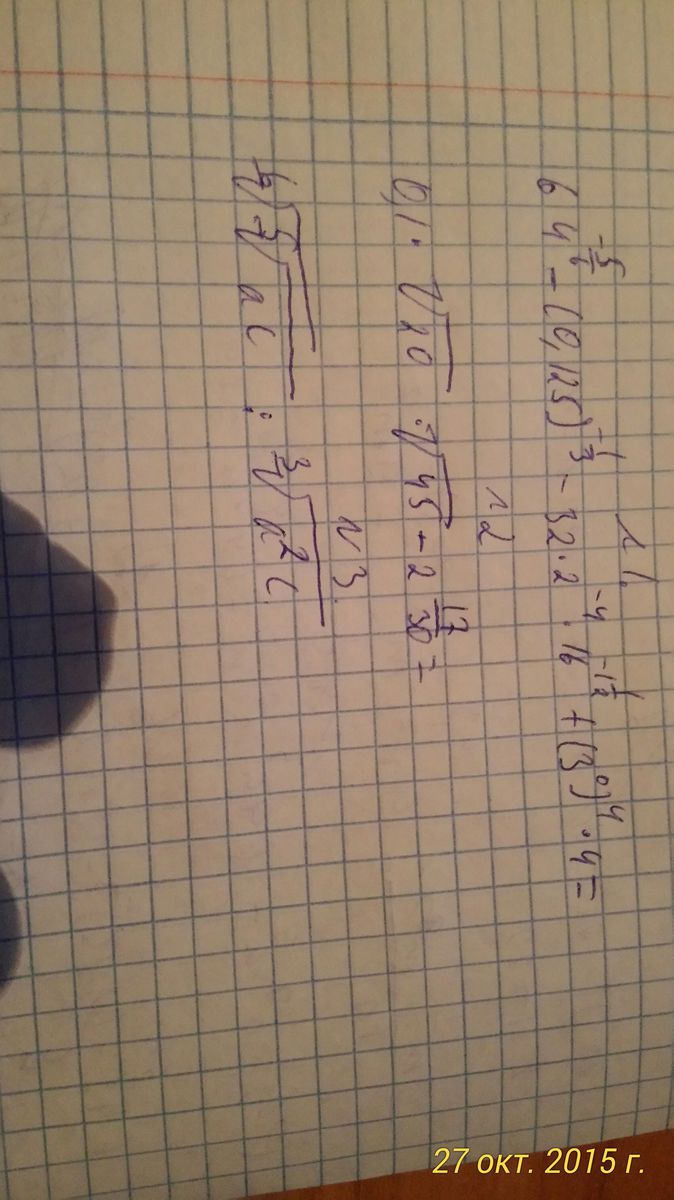 №1.
64^{-\frac{5}{6}} - (0,125)^{-\frac{1}{3}} - 32 · 2^{-4} · 16^{-1\frac{1}{2}} + (3^0)^4 · 4 =
№2
0,1 · √20 : √45 + 2\frac{17}{30} =
№3.
ac : ∛(a²c)
27 окт. 2015 г.